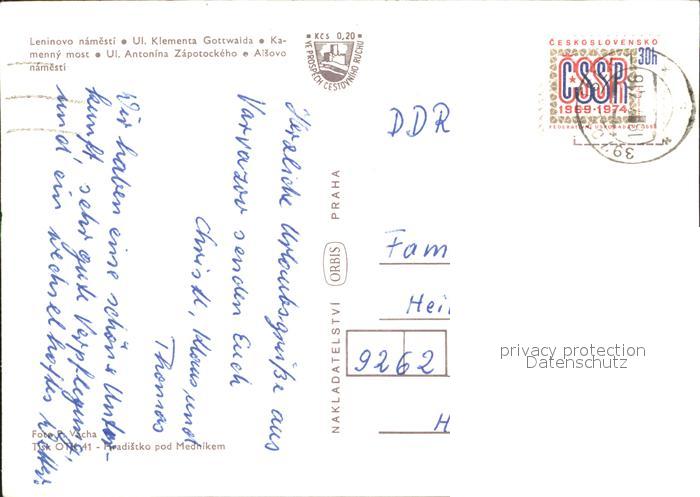 Leninovo náměstí • Ul. Klementa Gottwalda • Ka-
menný most • Ul. Antonína Zápotockého • Alšovo
náměstí
Kčs 0,20
VE PROSPĚCH CESTOVNÍHO RUCHU
ČESKOSLOVENSKO
30h
ČSSR
1969-1974
Herzliche Urlaubsgrüße aus
Varvazov senden Euch
Christl, Klaus und
Thomas
Wir haben eine schöne Unter-
kunft, sehr gute Verpflegung,
und ein wechselhaftes Wetter.
NAKLADATELSTVÍ ORBIS PRAHA
DDR
Fam
Hei
9262
H
privacy protection
Datenschutz
Foto P. Vácha
Tisk 41 - Hradištko pod Medníkem